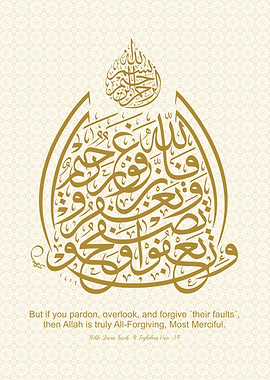 بسم الله الرحمن الرحيم
وإن تعفوا وتصفحوا وتغفروا فإن الله غفور رحيم
But if you pardon, overlook, and forgive ˹their faults˺,
then Allah is truly All-Forgiving, Most Merciful.